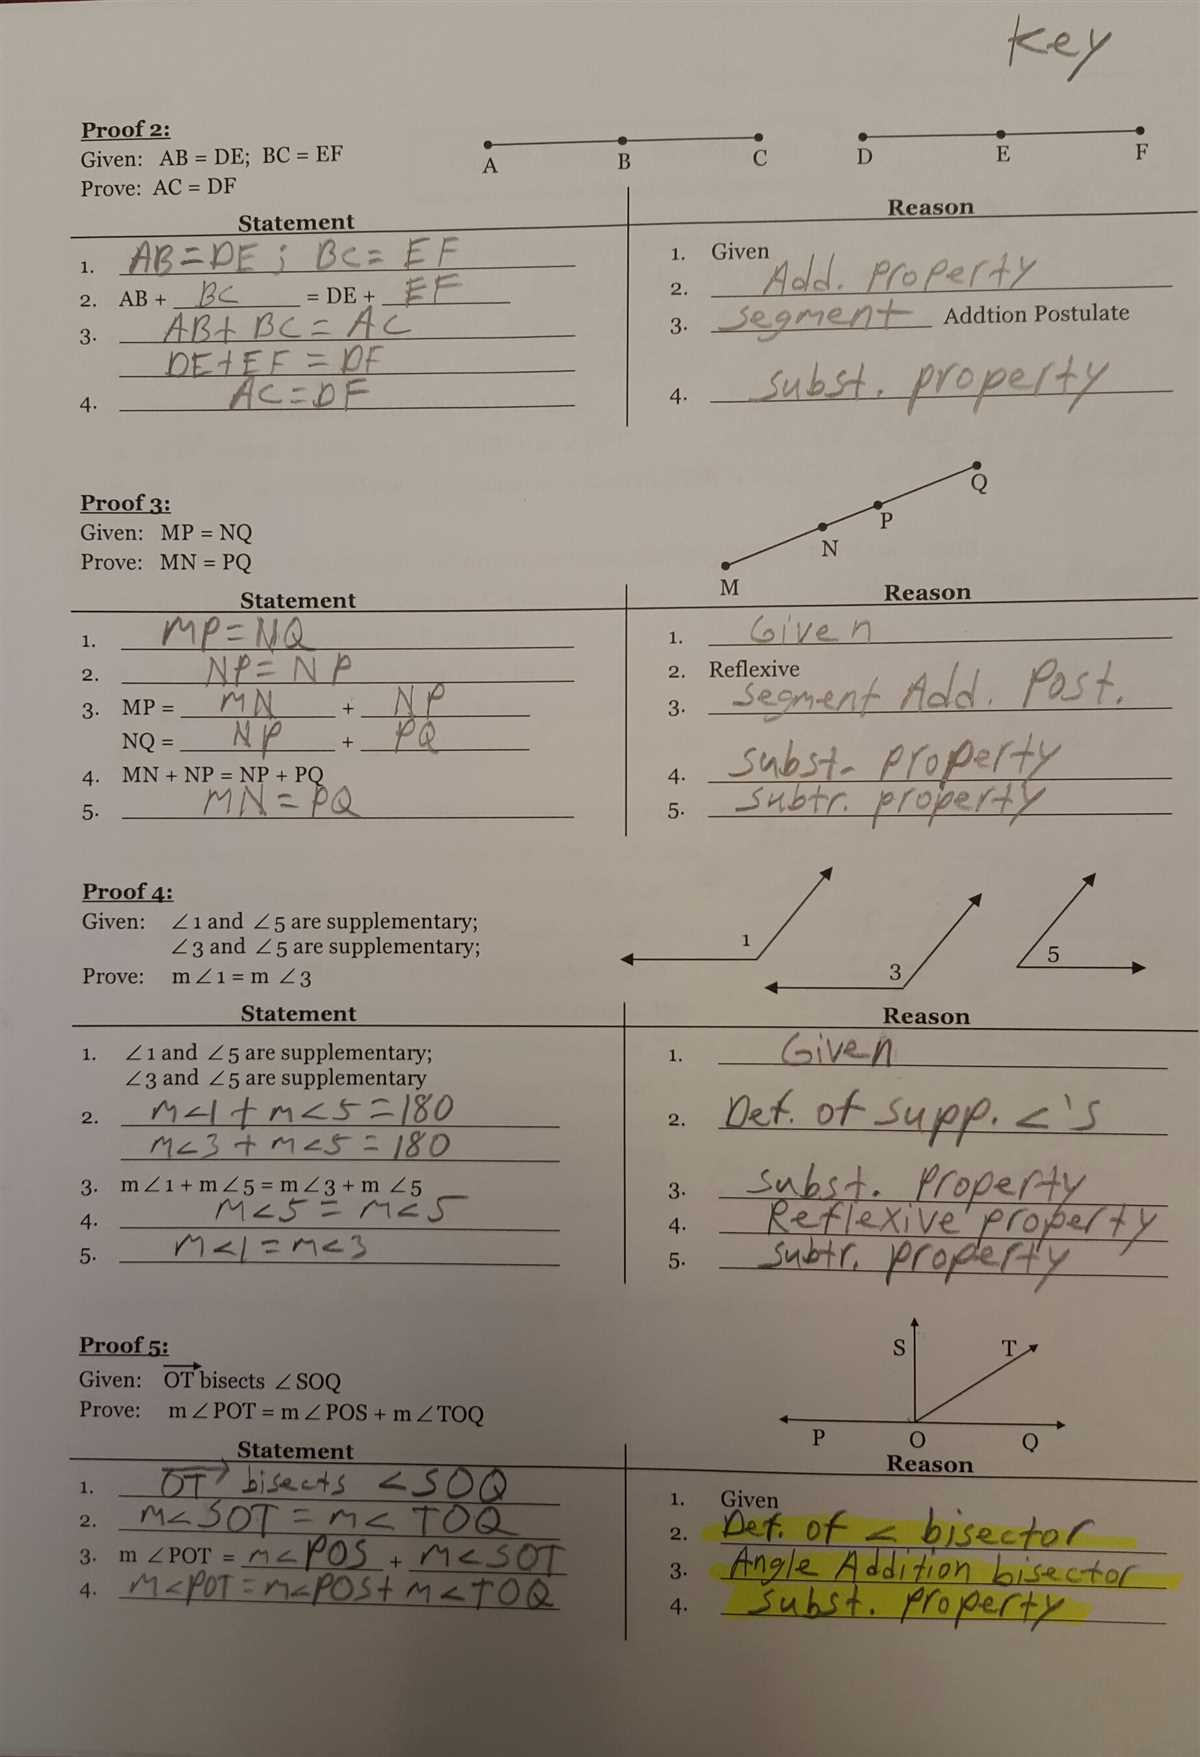 Key
Proof 2:
Given: AB = DE; BC = EF
Prove: AC = DF
A B C D E F
Statement Reason
1. AB = DE ; BC = EF 1. Given
2. AB + BC = DE + EF 2. Add. property
3. AB + BC = AC 3. segment Addtion Postulate
DE + EF = DF
4. AC = DF 4. subst. property
Proof 3:
Given: MP = NQ
Prove: MN = PQ
M N P Q
Statement Reason
1. MP = NQ 1. Given
2. NP = NP 2. Reflexive
3. MP = MN + NP 3. segment Add. Post.
NQ = NP + PQ
4. MN + NP = NP + PQ 4. subst. property
5. MN = PQ 5. subtr. property
Proof 4:
Given: ∠1 and ∠5 are supplementary;
∠3 and ∠5 are supplementary;
Prove: m∠1 = m ∠3
1 3 5
Statement Reason
1. ∠1 and ∠5 are supplementary; 1. Given
∠3 and ∠5 are supplementary
2. m<1 + m<5 = 180 2. Def. of supp. <'s
m<3 + m<5 = 180
3. m∠1 + m∠5 = m∠3 + m ∠5 3. subst. property
4. m<5 = m<5 4. Reflexive property
5. m<1 = m<3 5. subtr. property
Proof 5:
Given: OT bisects ∠SOQ
Prove: m∠POT = m∠POS + m∠TOQ
S T
P O Q
Statement Reason
1. OT bisects <SOQ 1. Given
2. m<SOT = m<TOQ 2. Def. of < bisector
3. m ∠POT = m<POS + m<SOT 3. Angle Addition bisector
4. m<POT = m<POS + m<TOQ 4. subst. property